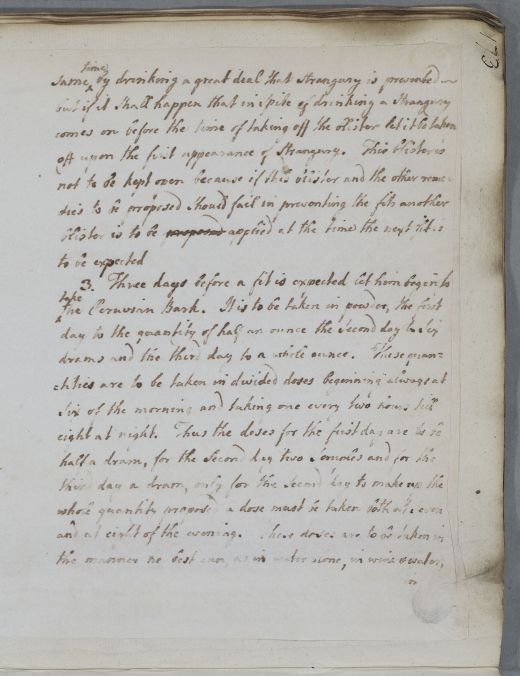 173
time
same ^ by drinking a great deal that Strangury is prevented
but if it Shall happen that in spite of drinking a Strangury
comes on before the time of taking off the blister let it be taken
off upon the first appearance of Strangury. This blister is
not to be kept open because if this blister and the other reme-
dies to be proposed Should fail in preventing the fits another
blister is to be proposed applied at the time the next fit is
to be expected
3. Three days before a fit is expected let him begin to
take
^ the Peruvian Bark. It is to be taken in powder, the first
day to the quantity of half an ounce the Second day to Six
drams and the third day to a whole ounce. These quan-
tities are to be taken in divided doses beginning always at
Six of the morning and taking one every two hours till
eight at night. Thus the doses for the first day are to be
half a dram, for the Second day two and for the
third day a dram, only for the Second day to make up the
whole quantity proposed a dose must be taken both at Seven
and at eight of the evening. These doses are to be taken in
the manner he best can, as in water alone, in wine & water,
in